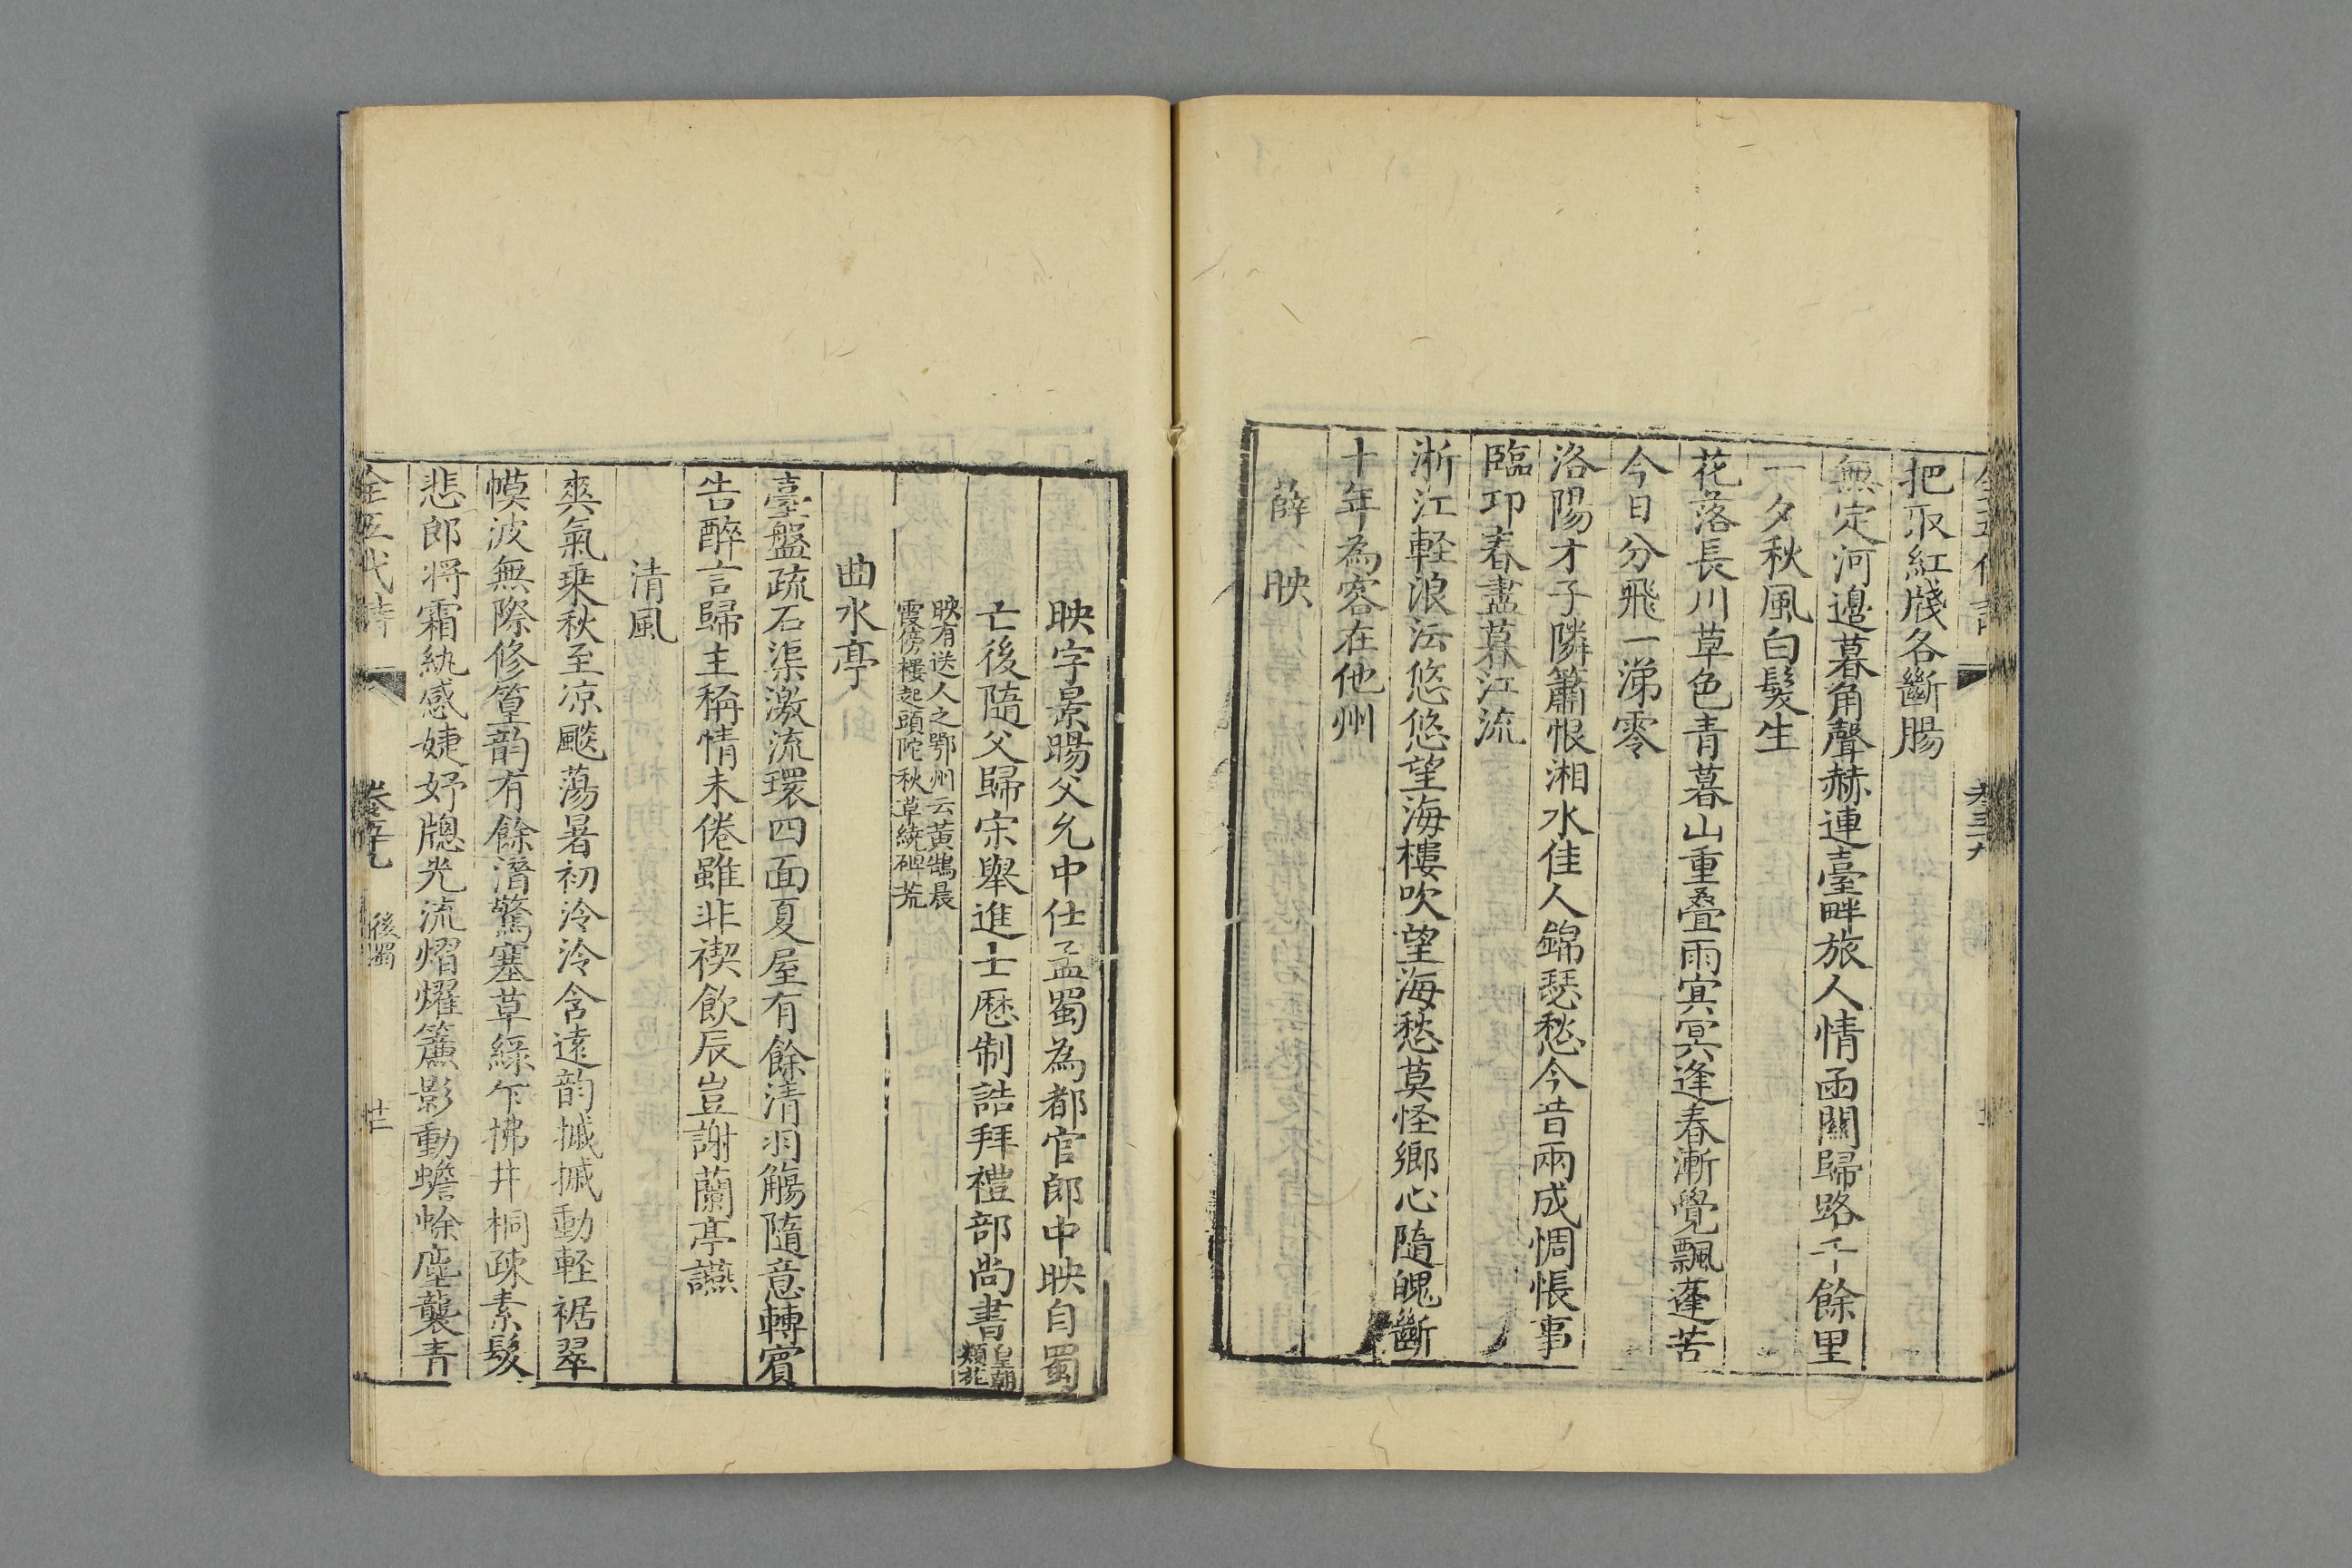 把取紅牋各斷腸
無定河邊暮角聲赫連臺畔旅人情函關歸路千餘里
一夕秋風白髮生
花落長川草色青暮山重疊雨冥冥逢春漸覺飄蓬苦
今日分飛一涕零
洛陽才子隣簫恨湘水佳人錦瑟愁今昔兩成惆悵事
臨卭春盡暮江流
淅江輕浪沄悠悠望海樓吹望海愁莫怪鄉心隨魄斷
十年為客在他州
薛映
映字景暘父允中仕孟蜀為都官郎中映自蜀
亡後隨父歸宋舉進士歷制誥拜禮部尚書皇朝
類苑
映有送人之鄂州云黃鵠晨
霞傍樓起頭陀秋草繞碑荒
曲水亭
臺盤疏石渠激流環四面夏屋有餘清羽觴隨意轉賓
告醉言歸主稱情未倦雖非禊飲辰豈謝蘭亭讌
清風
爽氣乘秋至凉飈蕩暑初泠泠含遠韵摵摵動軽裾翠
幙波無際修篁韵有餘潛驚塞草綠乍拂井桐疎素髮
悲郎将霜紈感婕妤牕光流熠燿簾影動蟾蜍塵襲青
全五代詩 卷五九 後蜀